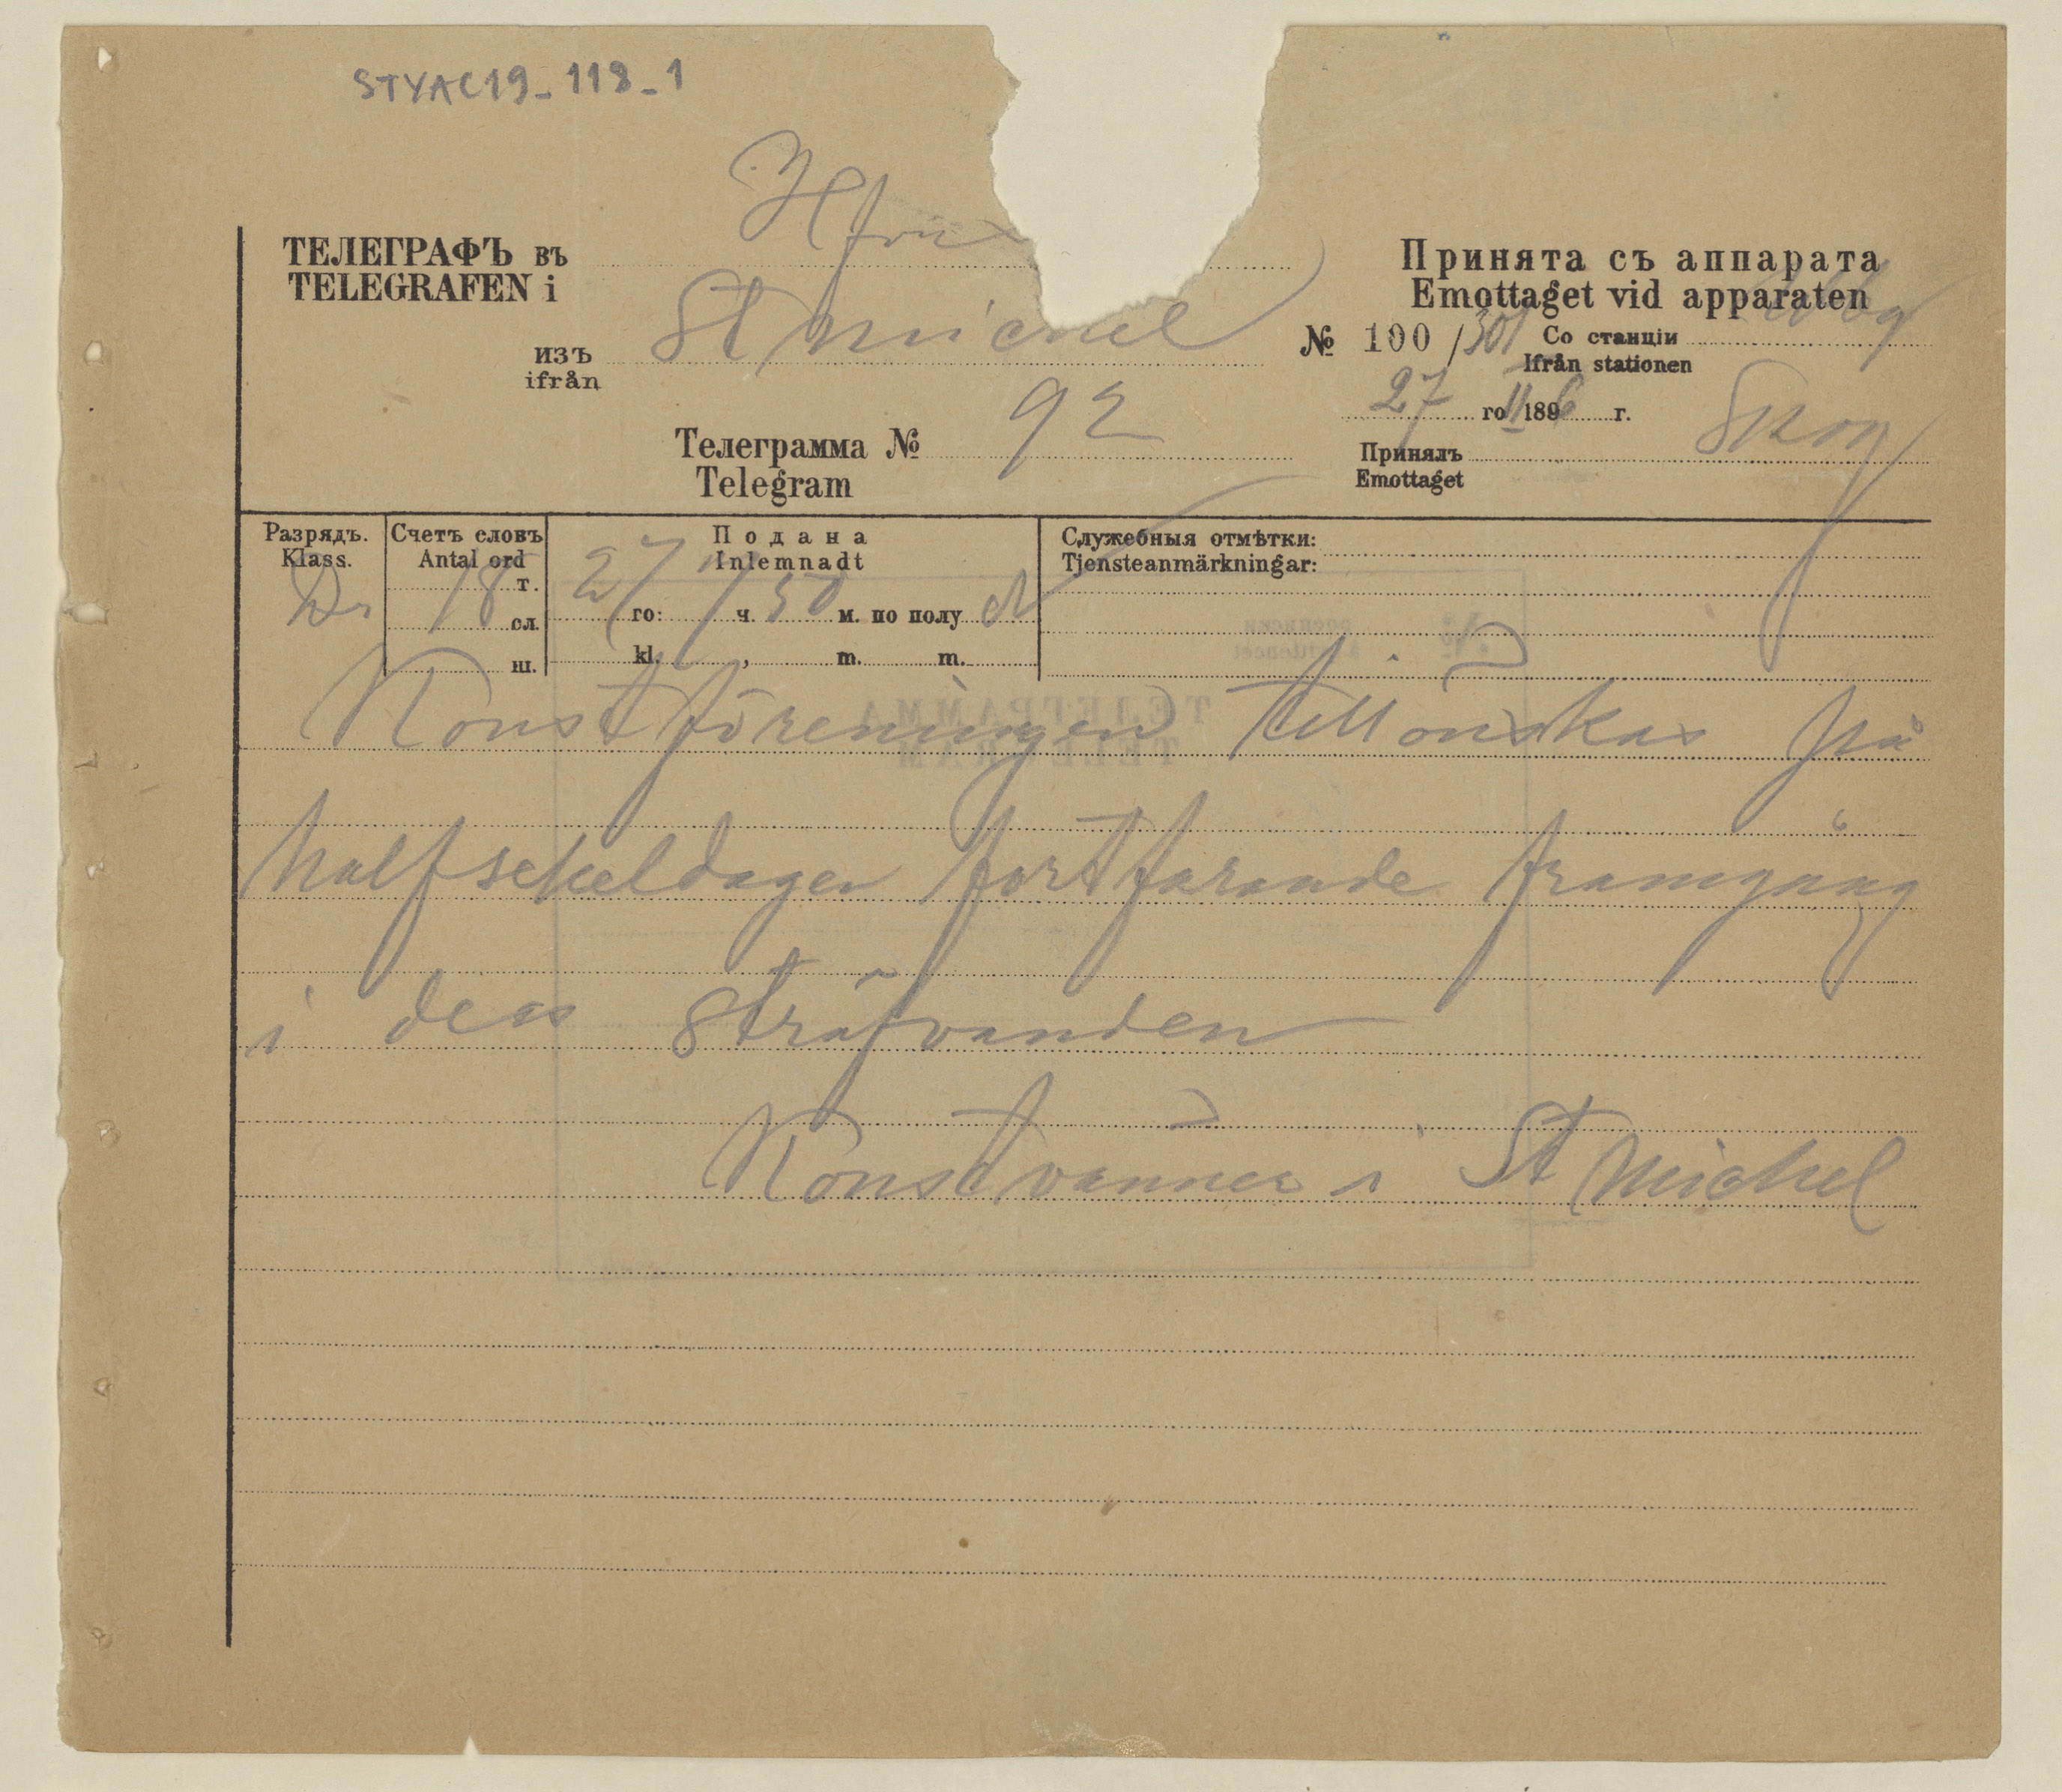 STYAC19_118_1
ТЕЛЕГРАФЪ въ
TELEGRAFEN i
Hfors
изъ
ifrån
St Michel
Телеграмма №
Telegram
92
Принята съ аппарата
Emottaget vid apparaten
№ 100 /301 Со станціи
Ifrån stationen
27 го II 1896 г.
Принялъ
Emottaget
Разрядъ.
Klass.
Счетъ словъ
Antal ord
18
т.
сл.
ш.
Подана
Inlemnadt
27 го: 1 ч. 50 м. по полу d
kl. , m. m.
Служебныя отмѣтки:
Tjensteanmärkningar:
Konstföreningen tillönskas på
halfsekeldagen fortfarande framgång
i dess sträfvanden
Konstvänner i St Michel